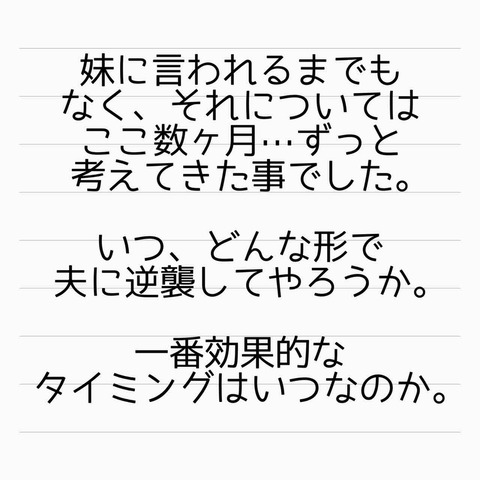 妹に言われるまでも
なく、それについては
ここ数ヶ月…ずっと
考えてきた事でした。
いつ、どんな形で
夫に逆襲してやろうか。
一番効果的な
タイミングはいつなのか。